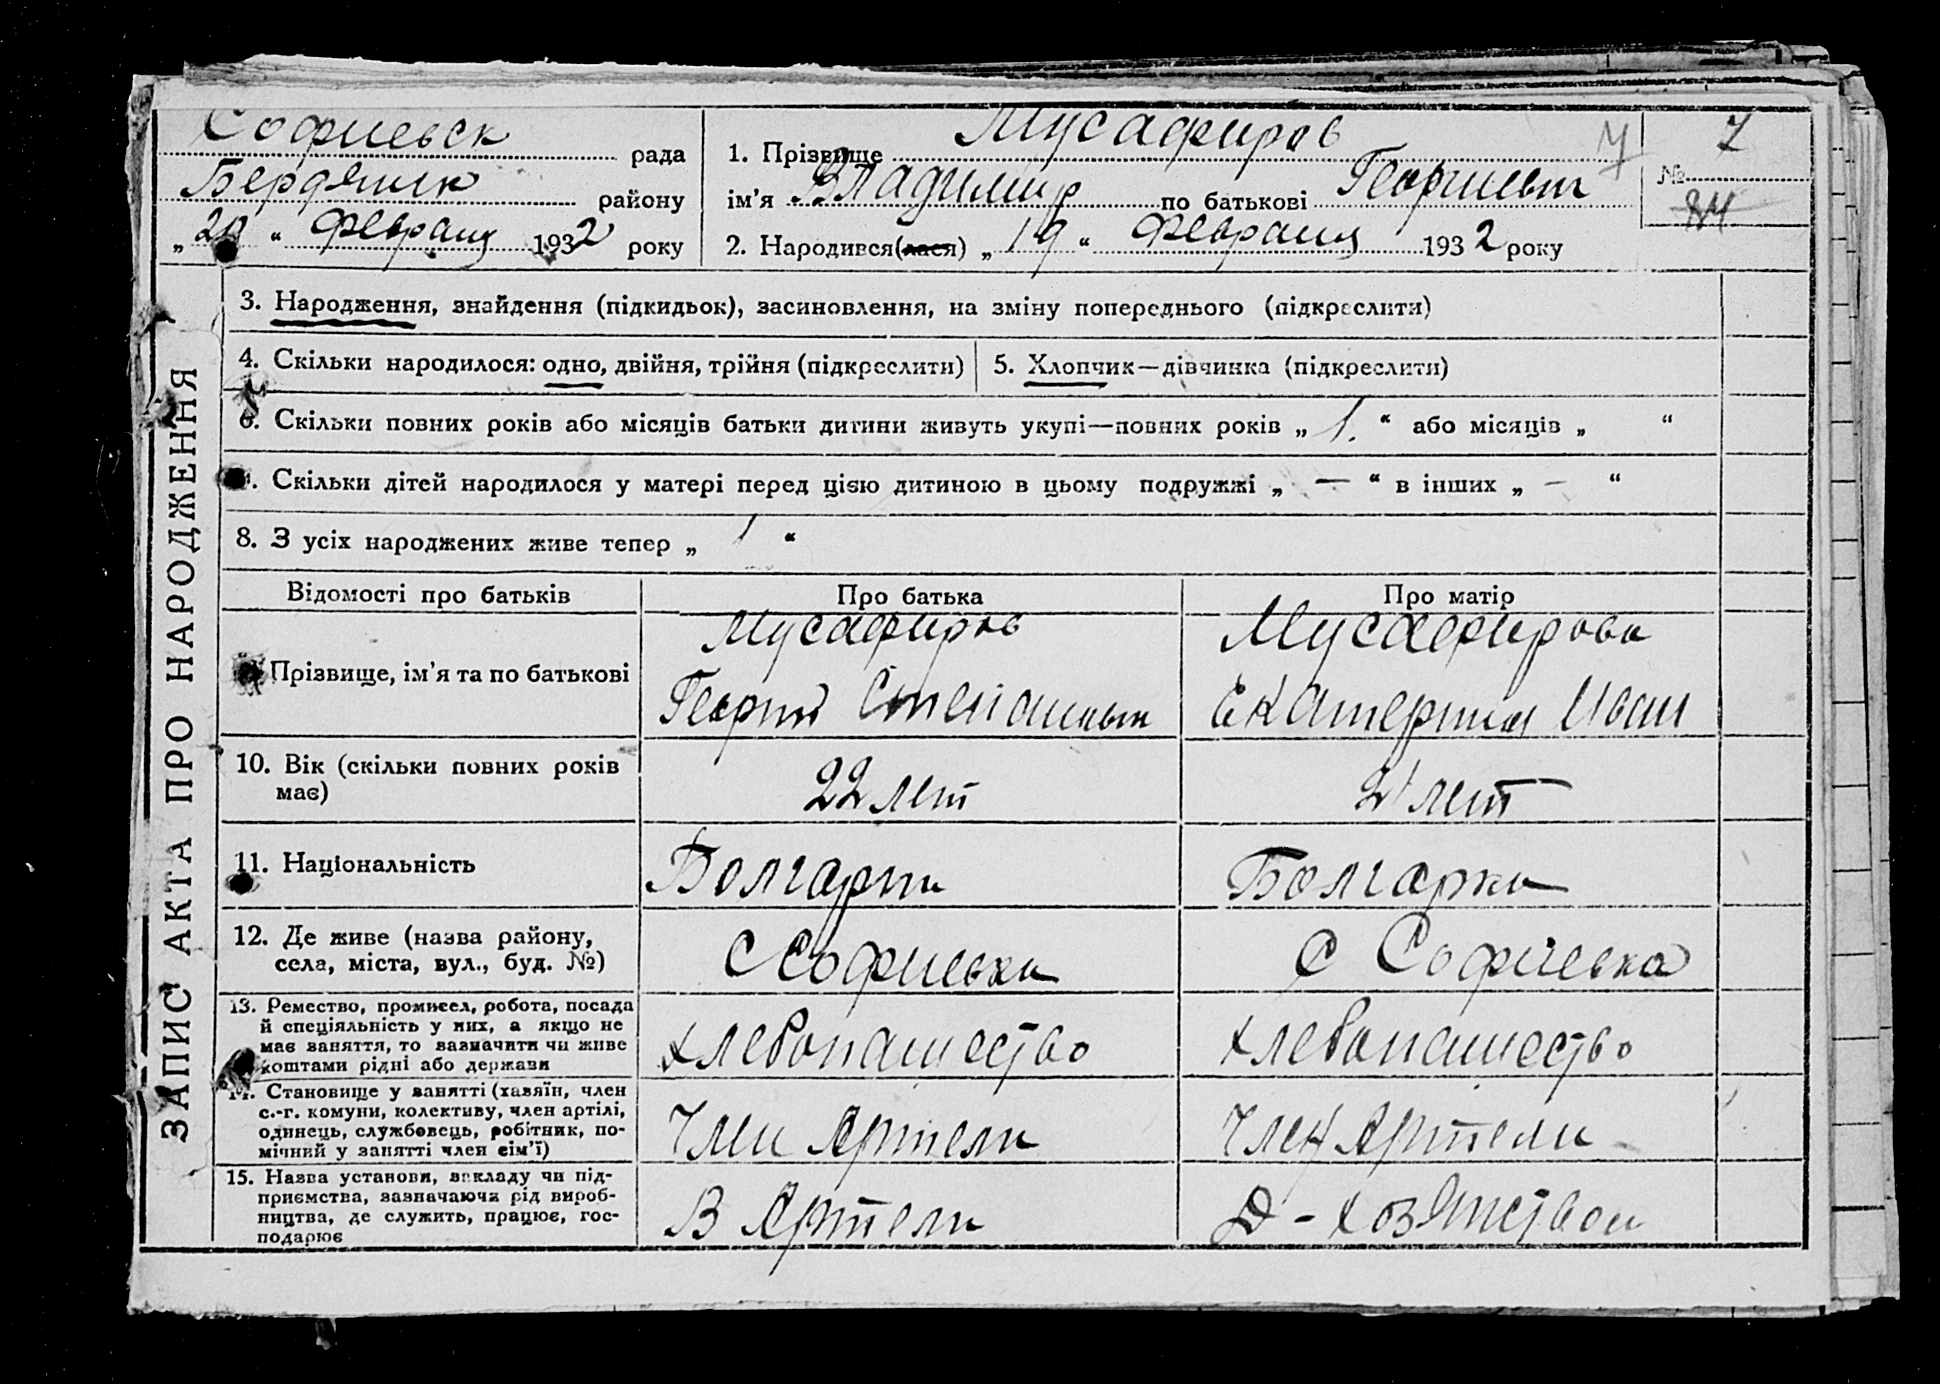 Софиевск рада
Бердянск району
„20“ Февраля 1932 року
1. Прізвище Мусафиров
ім'я Владимир по батькові Георгиевич
2. Народився(лася) „19“ Февраля 1932 року
7
№
84
ЗАПИС АКТА ПРО НАРОДЖЕННЯ
3. Народження, знайдення (підкидьок), засиновлення, на зміну попереднього (підкреслити)
4. Скільки народилося: одно, двійня, трійня (підкреслити)
5. Хлопчик—дівчинка (підкреслити)
6. Скільки повних років або місяців батьки дитини живуть укупі—повних років „1.“ або місяців „ “
Скільки дітей народилося у матері перед цією дитиною в цьому подружжі „—“ в інших „—“
8. З усіх народжених живе тепер „1“
Відомості про батьків
Про батька
Про матір
Прізвище, ім'я та по батькові
Мусафиров
Георгий Степанович
Мусафирова
Екатерина Иван
10. Вік (скільки повних років
має)
22 лет
21 лет
11. Національність
Болгарин
Болгарка
12. Де живе (назва району,
села, міста, вул., буд. №)
С Софиевка
С Софиевка
13. Ремество, промисел, робота, посада
й спеціяльність у них, а якщо не
має заняття, то зазначити чи живе
коштами рідні або держави
хлебопашество
хлебопашество
14. Становище у занятті (хазяїн, член
с.-г. комуни, колективу, член артілі,
одинець, службовець, робітник, по-
мічний у занятті член сім'ї)
Член Артели
Член Артели
15. Назва установи, закладу чи під-
приємства, зазначаючи рід вироб-
ництва, де служить, працює, гос-
подарює
В Артели
Д-хозяйством